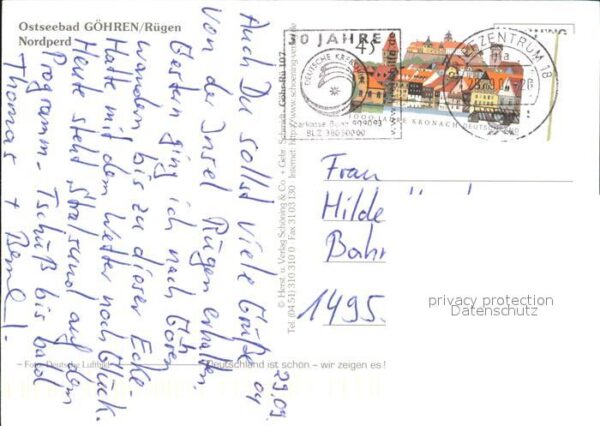 Ostseebad GÖHREN/Rügen
Nordperd
29.09.04
Auch Du sollst viele Grüße
von der Insel Rügen erhalten
Gestern ging ich nach Göhren
wandern bis zu dieser Ecke-
Hatte mit dem Wetter noch Glück.
Heute steht Stralsund auf dem
Programm - Tschüß bis bald
Thomas +
© Herst. u. Verlag Schöning & Co + Gebr. Schmidt · Göhr Rü 107
Tel. (04 51) 310 310 0 Fax 31 03 130 · Internet: http://www.schoening-verlag.de
50 JAHRE
DEUTSCHE KREBSHILFE
Sparkasse Bonn 909093
BLZ 380 500 00
45
1000 JAHRE KRONACH DEUTSCHLAND
BRIEFZENTRUM 18
Frau
Hilde
Bahr
1495.
privacy protection
Datenschutz
– Foto: Deutsche Luftbild –
Deutschland ist schön – wir zeigen es!